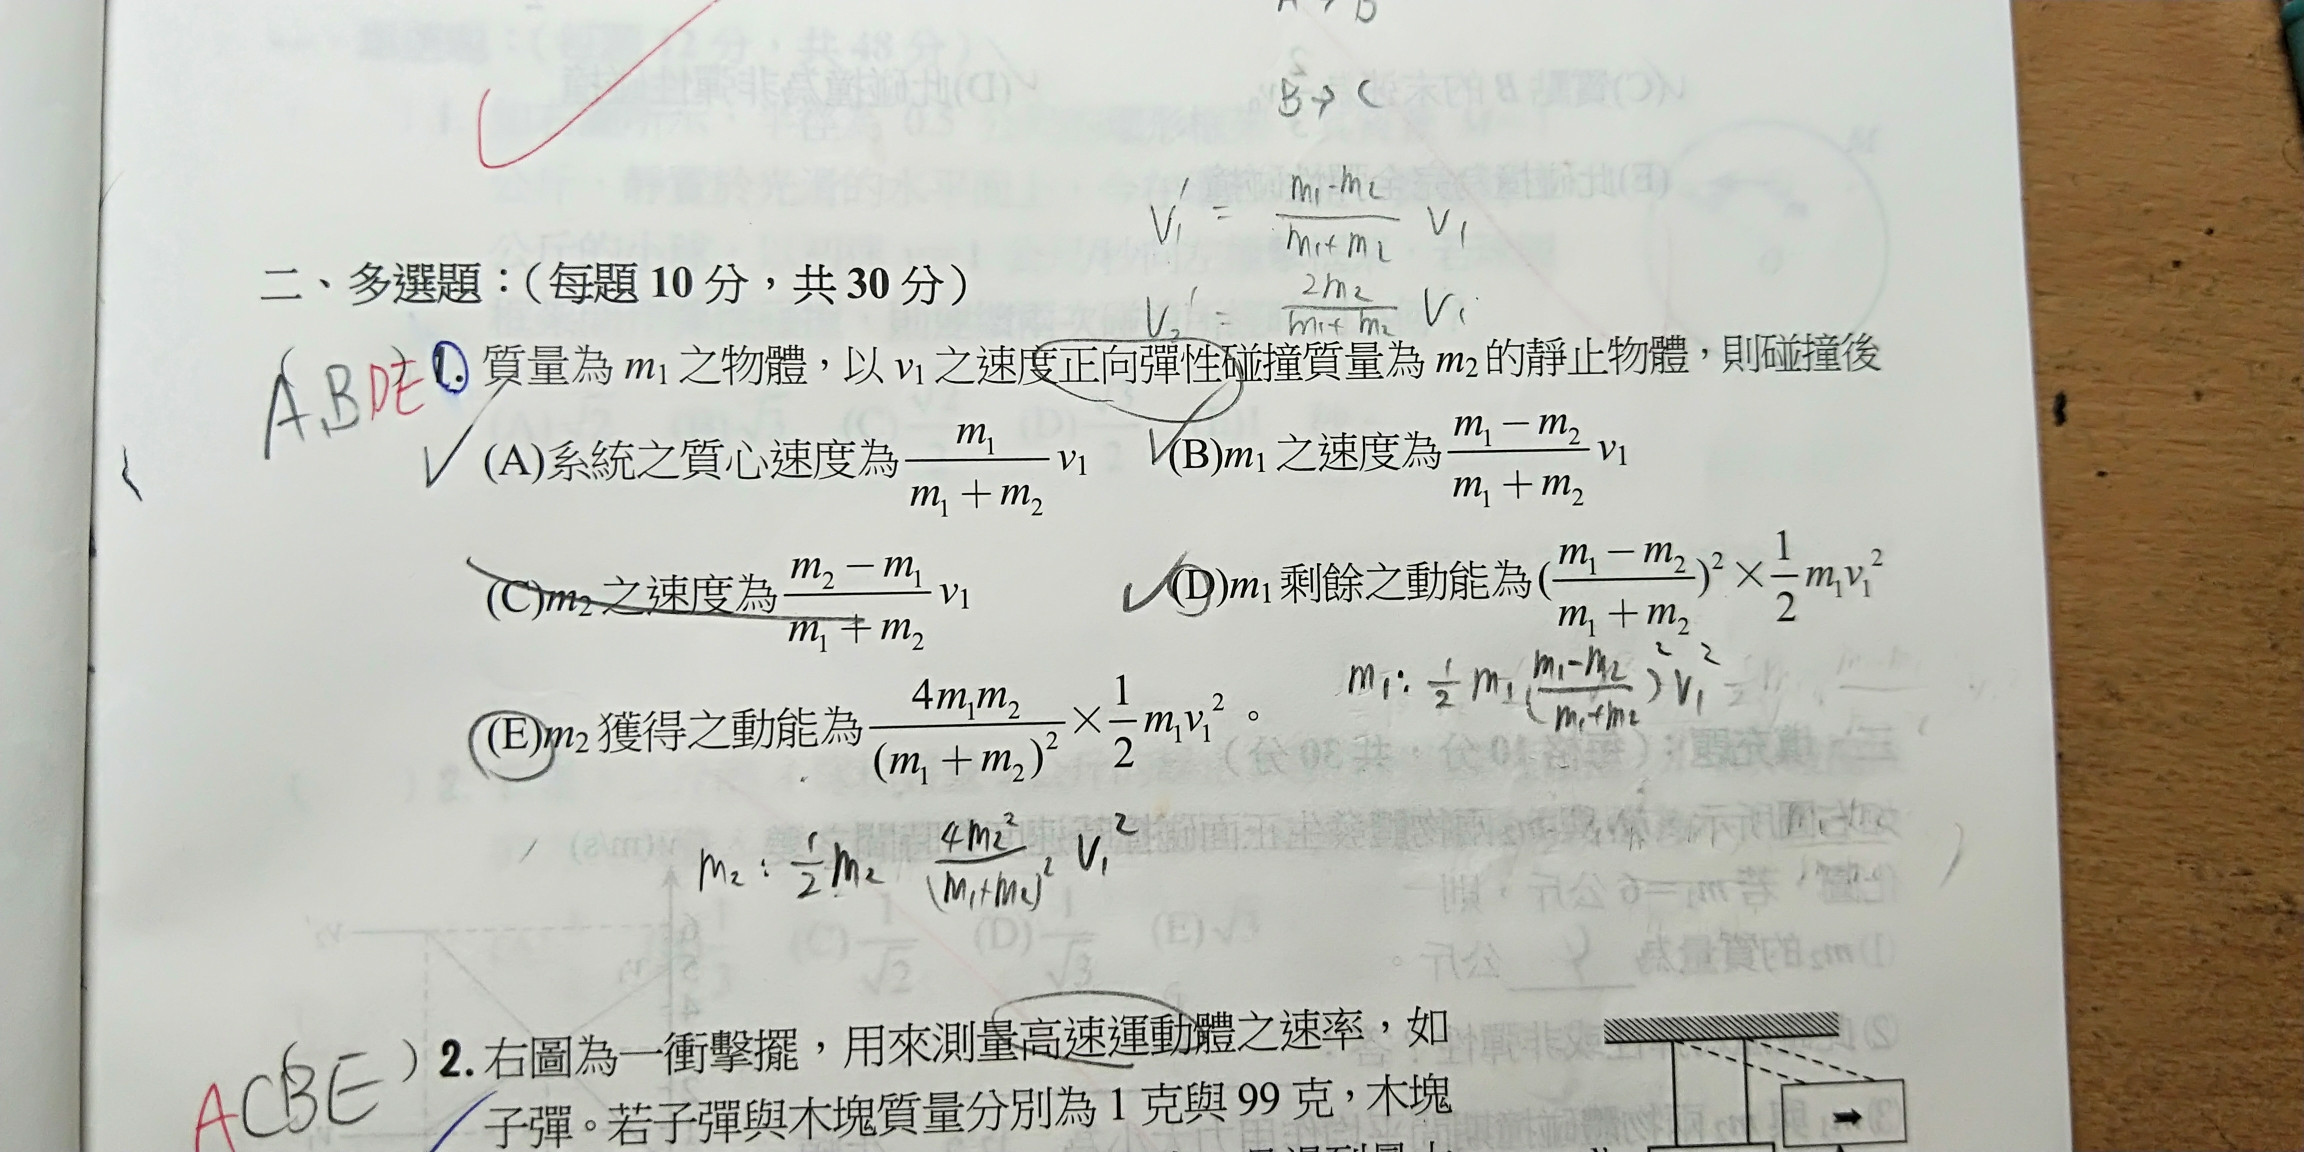 B → C
v₁' = (m₁-m₂)/(m₁+m₂) v₁
v₂' = 2m₂/(m₁+m₂) v₁
二、多選題：（每題 10 分，共 30 分）
(A,B DE 1. 質量為 m₁ 之物體，以 v₁ 之速度正向彈性碰撞質量為 m₂ 的靜止物體，則碰撞後
(A)系統之質心速度為 m₁/(m₁+m₂) v₁ (B)m₁ 之速度為 (m₁-m₂)/(m₁+m₂) v₁
(C)m₂ 之速度為 (m₂-m₁)/(m₁+m₂) v₁ (D)m₁ 剩餘之動能為 ((m₁-m₂)/(m₁+m₂))² × 1/2 m₁v₁²
m₁: 1/2 m₁ ((m₁-m₂)/(m₁+m₂))² v₁²
(E)m₂ 獲得之動能為 4m₁m₂/(m₁+m₂)² × 1/2 m₁v₁² 。
m₂ : 1/2 m₂ 4m₂²/(m₁+m₂)² v₁²
(ACBE) 2. 右圖為一衝擊擺，用來測量高速運動體之速率，如
子彈。若子彈與木塊質量分別為 1 克與 99 克，木塊